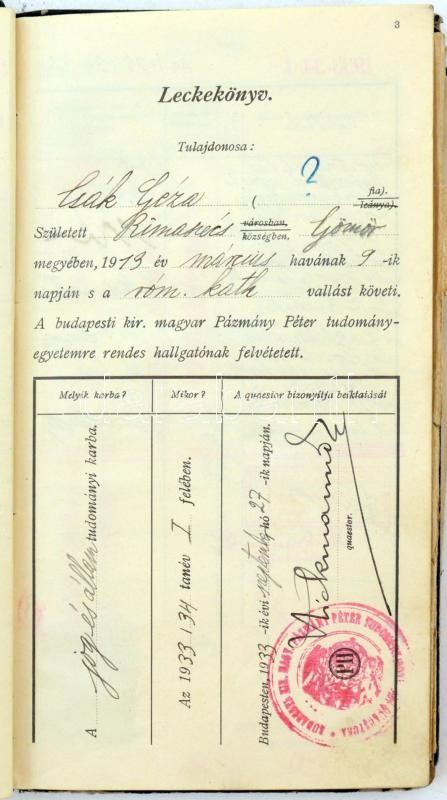 3
Leckekönyv.
Tulajdonosa:
Csák Géza ( ? fia).
leánya).
Született Rimaszécs városban, Gömör
községben,
megyében, 1913 év március havának 9-ik
napján s a róm. kath vallást követi.
A budapesti kir. magyar Pázmány Péter tudomány-
egyetemre rendes hallgatónak felvétetett.
Melyik karba?
Mikor?
A quaestor bizonyítja beiktatását
A jog és állam tudományi karba.
Az 1933/34 tanév I felében.
Budapesten, 1933-ik évi szeptember hó 27-ik napján.
quaestor.
PH